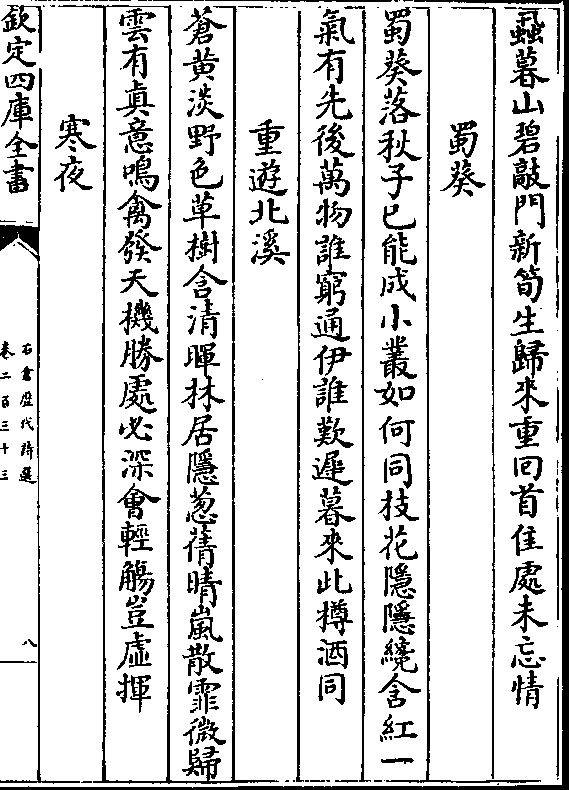 蝨暮山碧敲門新筍生歸來重回首佳處未忘情
蜀葵
蜀葵落秋子已能成小叢如何同枝花隱隱纔含紅一
氣有先後萬物誰窮通伊誰歎遲暮來此樽酒同
重遊北溪
蒼黃淡野色草樹含清暉林居隱葱蒨晴嵐散霏微歸
雲有眞意鳴禽發天機勝處必深會輕觴豈虛揮
寒夜
欽定四庫全書
石倉歷代詩選
卷二百三十三
八